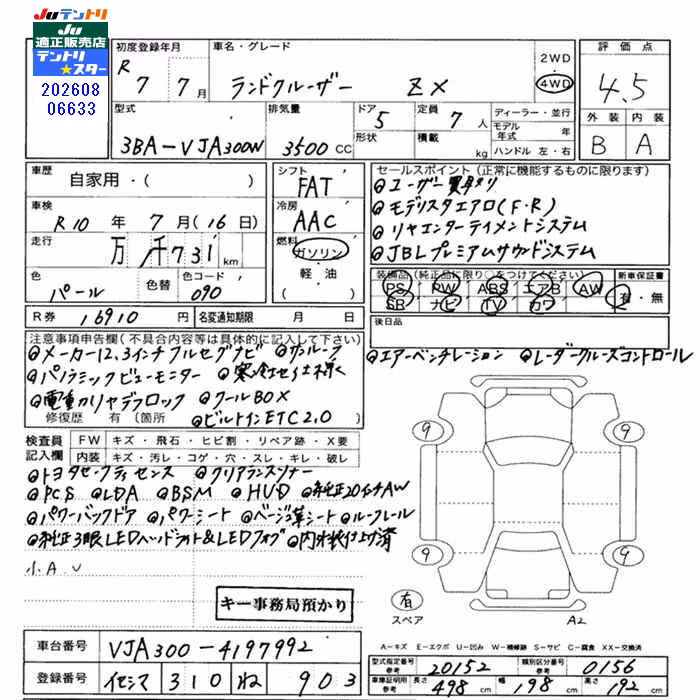 JUテントリ
JU
適正販売店
テントリ
★スター
202608
06633
初度登録年月
R 7 7月
車名・グレード
ランドクルーザー ZX
2WD
4WD
評価点
4.5
外装 内装
B A
型式
3BA-VJA300W
排気量
3500cc
ドア
5
形状
定員
7人
積載
kg
ディーラー・並行
モデル
年式 年
ハンドル 左・右
車歴
自家用・( )
シフト
FAT
車検
R10年 7月(16日)
冷房
AAC
走行
万 千731km
燃料
ガソリン
軽油
( )
色
パール
色替
色コード
090
R券 16910円
名変通知期限 月 日
セールスポイント(正常に機能するものに限ります)
◎ユーザー買取り
◎モデリスタエアロ(F・R)
◎リヤエンターテイメントシステム
◎JBLプレミアムサウンドシステム
装備品(純正品に限り○をつけてください)
PS PW ABS エアB AW
SR ナビ TV カワ
新車保証書
有・無
後日品
◎エアーベンチレーション ◎レーダークルーズコントロール
注意事項申告欄(不具合内容等は具体的に記入して下さい)
◎メーカー12.3インチフルセグナビ ◎サンルーフ
◎パノラミックビューモニター ◎寒冷地仕様
◎電動リヤデフロック ◎クールBOX
修復歴 有(箇所
◎ビルトインETC2.0)
検査員
記入欄
FW キズ・飛石・ヒビ割・リペア跡・X要
内装 キズ・汚レ・コゲ・穴・スレ・キレ・破レ
◎トヨタセーフティセンス ◎クリアランスソナー
◎PCS ◎LDA ◎BSM ◎HUD ◎純正20インチAW
◎パワーバックドア ◎パワーシート ◎ベージュ革シート ◎ルーフレール
◎純正3眼LEDヘッドライト&LEDフォグ ◎内外装仕上げ済
小A、U
キー事務局預かり
9 9
9 9
有
スペア
A2
車台番号 VJA300-4197992
登録番号 310 ね 903
A-キズ E-エクボ U-凹み W-補修跡 S-サビ C-腐食 XX-交換済
型式指定番号
参考
20152
類別区分番号
参考
0156
車庫証明用
参考
長さ 498cm 幅 198cm 高さ 192cm